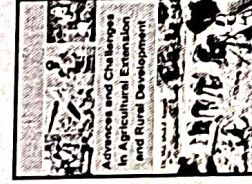 Advances and Challenges
in Agricultural Extension
and Rural Development